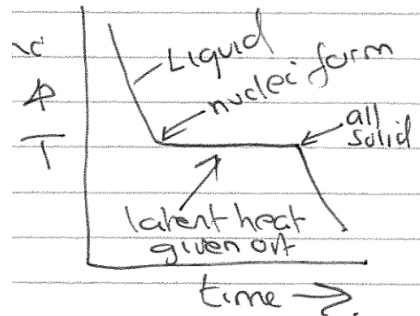 Liquid
nuclei form
T
all
solid
latent heat
given out
time